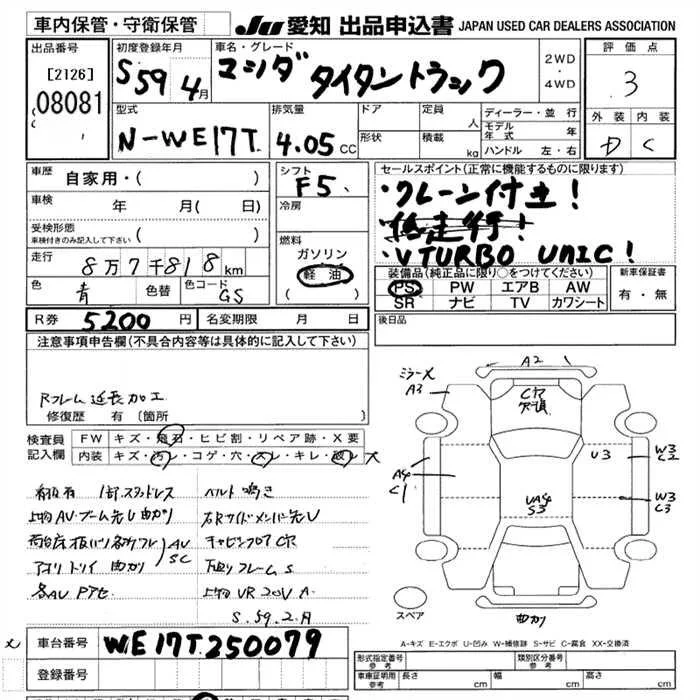 車内保管・守衛保管
JU 愛知 出品申込書 JAPAN USED CAR DEALERS ASSOCIATION
出品番号
[2126]
08081
初度登録年月
S59 4月
車名・グレード
マシダ タイタントラック
2WD
・
4WD
評価点
3
外装 内装
D C
型式
N-WE17T.
排気量
4.05 CC
ドア
形状
定員
人
積載
kg
ディーラー・並行
モデル年式 年
ハンドル 左・右
車歴
自家用・( )
車検
年 月( 日)
受検形態
車検付きのみ記入して下さい ( )
走行
8万7千818 km
色
青
色替
色コード
GS
シフト
F5、
冷房
燃料
ガソリン
軽油
( )
セールスポイント(正常に機能するものに限ります)
・クレーン付き!
・低走行!
・V TURBO UNIC!
装備品(純正品に限り○をつけてください)
PS PW エアB AW
SR ナビ TV カワシート
新車保証書
有・無
R券 5200 円
名変期限 月 日
後日品
注意事項申告欄(不具合内容等は具体的に記入して下さい)
Rフレーム延長加工
修復歴 有〔箇所 〕
検査員記入欄
FW キズ・飛石・ヒビ割・リペア跡・X要
内装 キズ・汚レ・コゲ・穴・スレ・キレ・破レ
1部スタッドレス
ベルト鳴き
上物AV・ブーム先U曲がり
右Rサイドメンバー先U
AV
SC
アオリ トリイ 曲がり
下廻りフレームS
各AV Pアセ
S.59.2.月
ミラーX
A3
A2
A4
C1
U3
W3
C2
W3
C3
UA4
S3
スペア
曲がり
A-キズ E-エクボ U-凹み W-補修跡 S-サビ C-腐食 XX-交換済
X
車台番号
WE17T.250079
登録番号
形式指定番号
参考
類別区分番号
参考
車庫証明用
参考
長さ cm
幅 cm
高さ cm